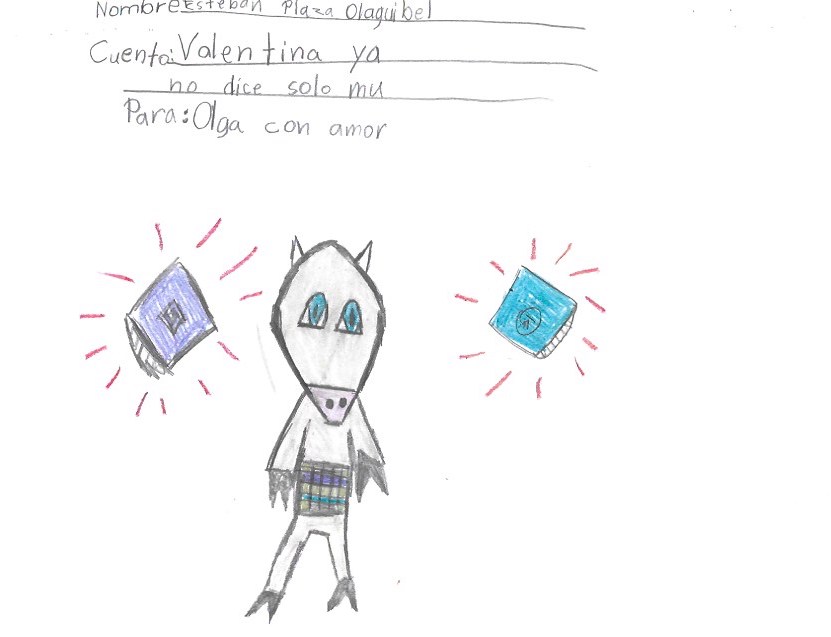 Nombre: Esteban Plaza Olaguibel
Cuento: Valentina ya
no dice solo mu
Para: Olga con amor